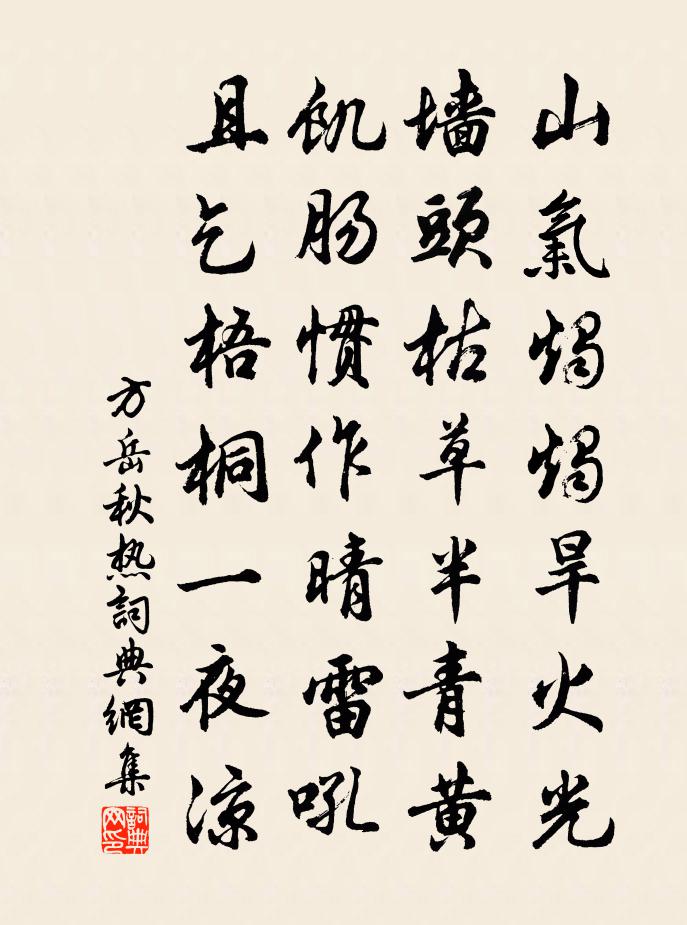 山氣燭燭旱火光
墙頭枯草半青黄
飢肠慣作晴雷吼
且乞梧桐一夜涼
方岳秋热詞典網集
詞典网印